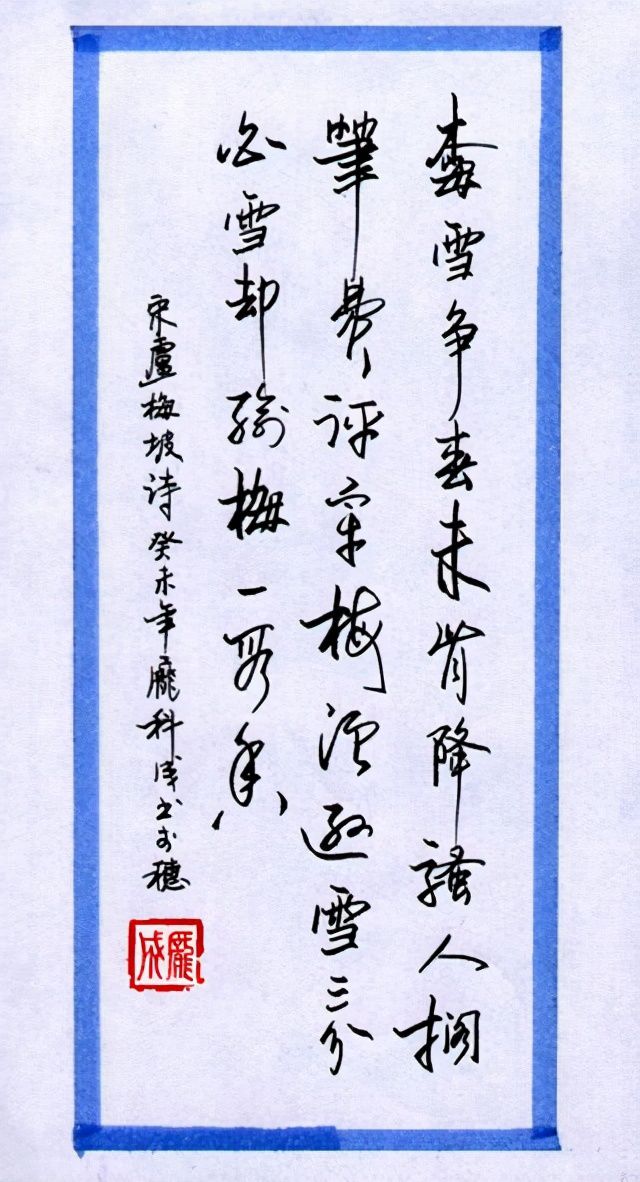 梅雪争春未肯降騷人搁
筆费评章梅须逊雪三分
白雪却输梅一段香
宋盧梅坡诗癸未年龐科成书於穗
龐成